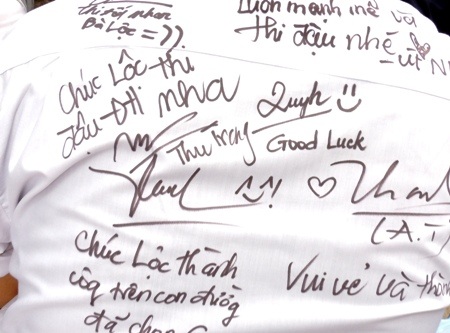 thi tốt nhen
Bà Lộc = ))
Luôn mạnh mẽ và
thi đậu nhé
- út N
Chúc Lộc thi
đậu ĐH nha
Quyh
Thu trang
Good Luck
^_^!
(A.T)
Chúc Lộc thành
côg trên con đườg
đã chọn
Vui vẻ và thàn